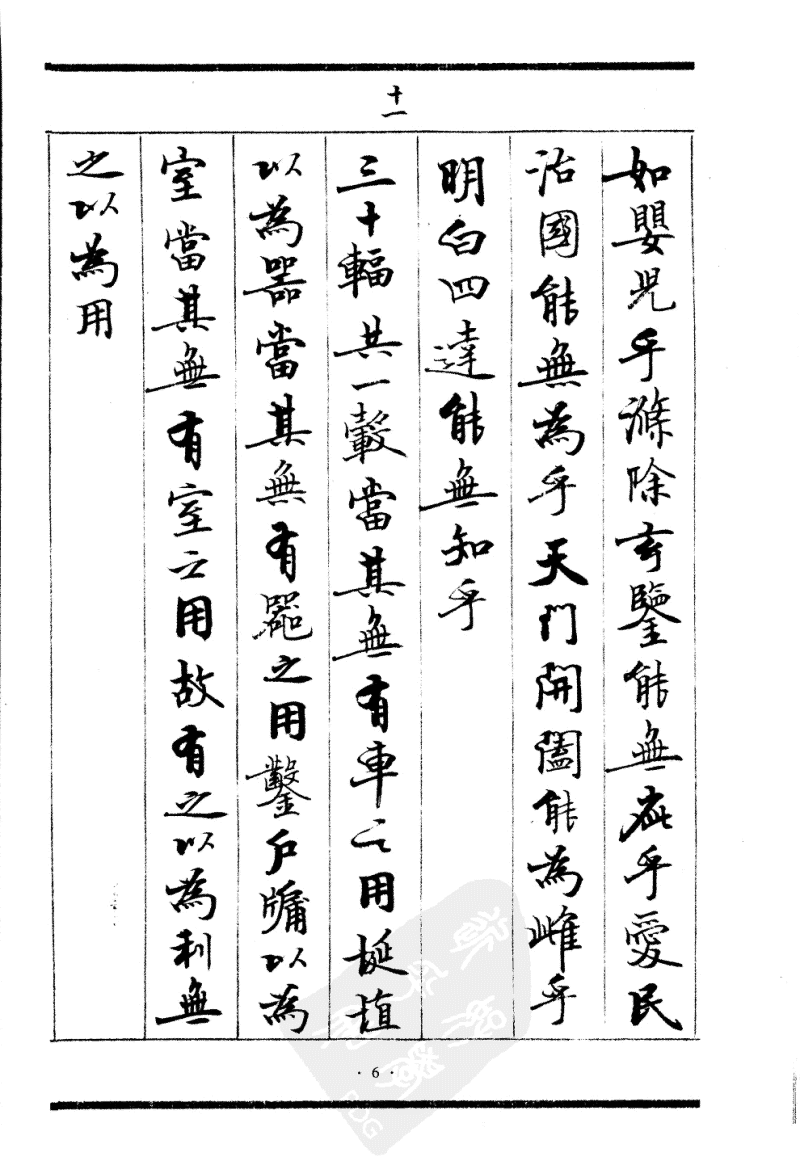 十一
如嬰兒乎滌除玄鑒能無疵乎愛民
治國能無為乎天門開闔能為雌乎
明白四達能無知乎
三十輻共一轂當其無有車之用埏埴
以為器當其無有器之用鑿戶牖以為
室當其無有室之用故有之以為利無
之以為用
·6·